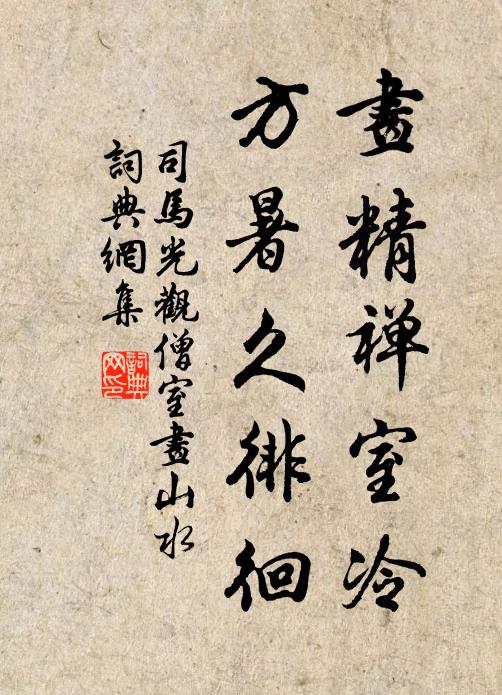 畫精禅室冷
方暑久徘徊
司馬光觀僧室畫山水
詞典網集
詞典网印